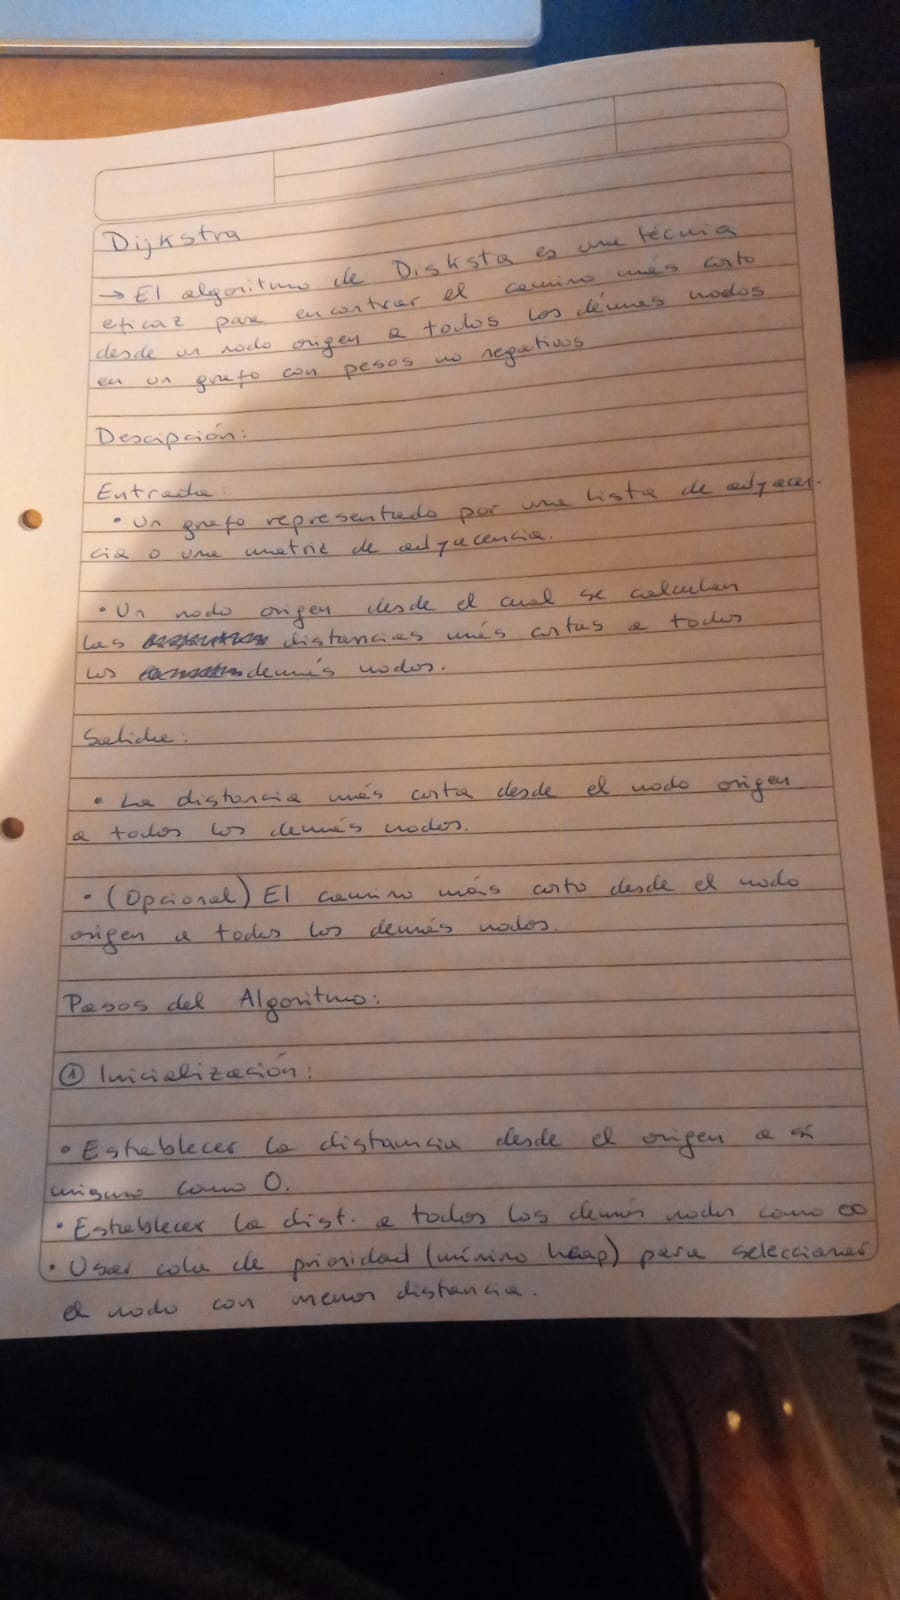 Dijkstra
→ El algoritmo de Disksta es una técnia
eficaz para encontrar el camino más corto
desde un nodo origen a todos los démas nodos
en un grafo con pesos no negativos
Descipción:
Entrada:
• Un grafo representado por una lista de adyacen-
cia o una matriz de adyacencia.
• Un nodo origen desde el cual se calculan
las distancias más cortas a todos
los demás nodos.
Salida:
• La distancia más corta desde el nodo origen
a todos los demás nodos.
• (Opcional) El camino más corto desde el nodo
origen a todos los demás nodos.
Pasos del Algoritmo:
① Inicialización:
• Establecer la distancia desde el origen a sí
mismo como 0.
• Establecer la dist. a todos los demás nodos como ∞
• Usar cola de prioridad (mínimo heap) para seleccionar
el nodo con menor distancia.